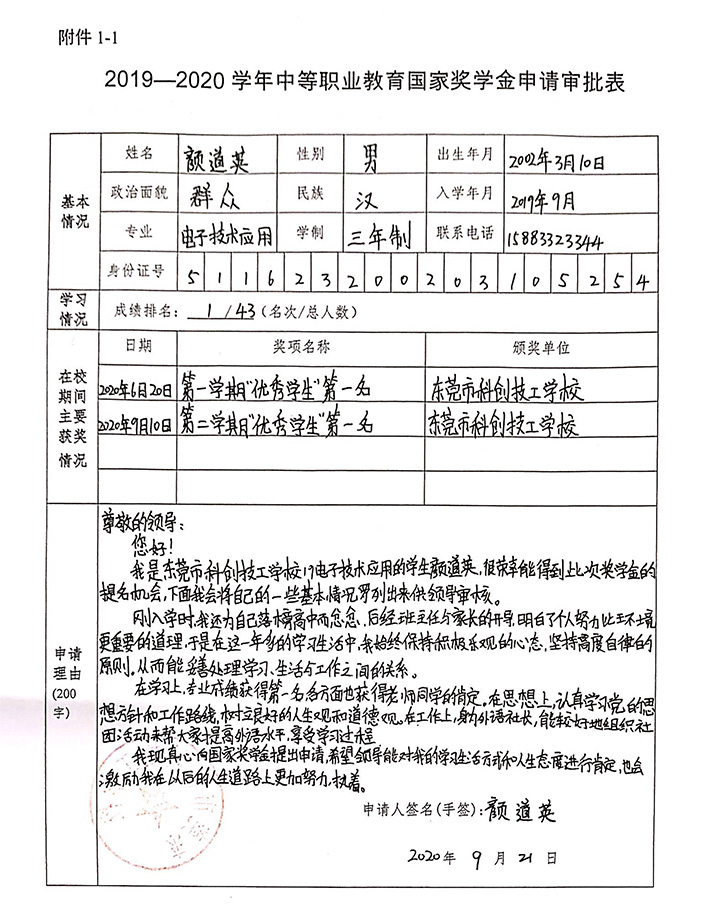 附件 1-1
2019—2020 学年中等职业教育国家奖学金申请审批表
基本情况
姓名 颜道英 性别 男 出生年月 2002年3月10日
政治面貌 群众 民族 汉 入学年月 2019年9月
专业 电子技术应用 学制 三年制 联系电话 15883323344
身份证号 5 1 1 6 2 3 2 0 0 2 0 3 1 0 5 2 5 4
学习情况 成绩排名: 1/43 (名次/总人数)
在校期间主要获奖情况
日期 奖项名称 颁奖单位
2020年6月20日 第一学期"优秀学生"第一名 东莞市科创技工学校
2020年9月10日 第二学期"优秀学生"第一名 东莞市科创技工学校
申请理由(200字)
尊敬的领导:
您好!
我是东莞市科创技工学校19电子技术应用的学生颜道英,很荣幸能得到此次奖学金的
提名机会,下面我会将自己的一些基本情况罗列出来供领导审核。
刚入学时,我还为自己落榜高中而怠怠,后经班主任与家长的开导,明白了个人努力比环境
更重要的道理,于是在这一年多的学习生活中,我始终保持积极乐观的心态,坚持高度自律的
原则。从而能妥善处理学习、生活与工作之间的关系。
在学习上,专业成绩获得第一名,各方面也获得老师同学的肯定。在思想上,认真学习党的思
想方针和工作路线,树立良好的人生观和道德观。在工作上,身为外语社长,能较好地组织社
团活动来帮大家提高外语水平,享受学习过程
我现真心向国家奖学金提出申请,希望领导能对我的学习生活方式和人生态度进行肯定,也会
激励我在以后的人生道路上更加努力,执着。
申请人签名(手签):颜道英
2020年 9月 21日